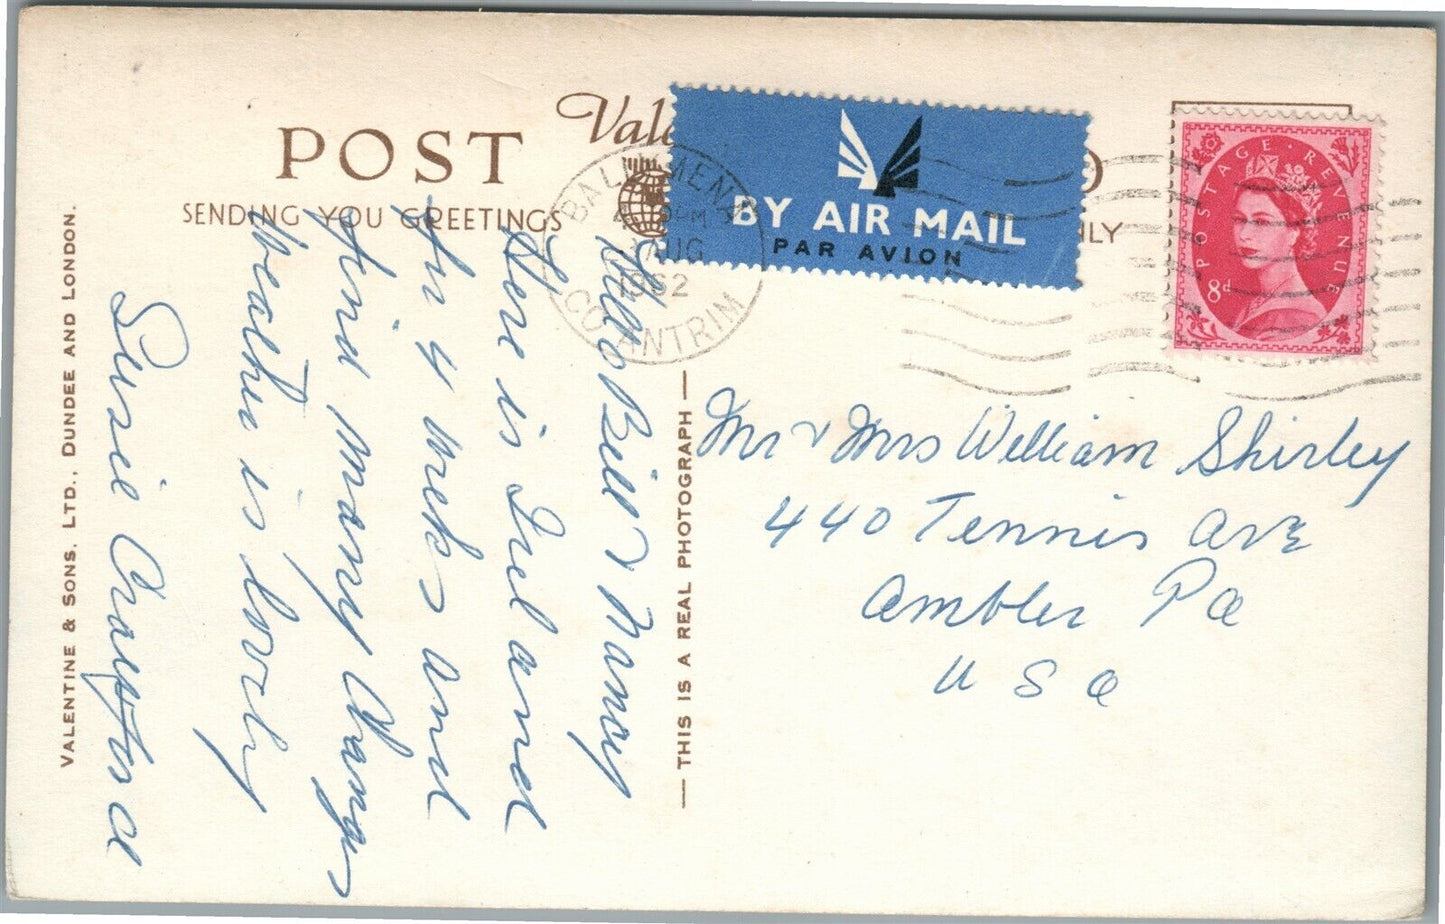 Vale
POST
D
SENDING YOU GREETINGS
NLY
BY AIR MAIL
PAR AVION
BALLYMENA
PM
AUG
1962
CO ANTRIM
POSTAGE REVENUE
8d
Hello Bill & Nancy
Here is Ireland
for 4 weeks and
find many changes
weather is lovely
Susie Crawford
Mr & Mrs William Shirley
440 Tennis Ave
Ambler Pa
U S a
THIS IS A REAL PHOTOGRAPH
VALENTINE & SONS. LTD., DUNDEE AND LONDON.